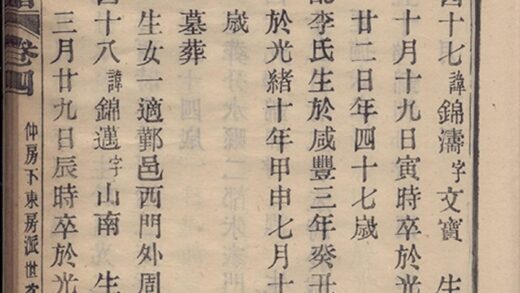 四十七諱錦濤字文寶 生
十月十九日寅時卒於光
廿二日年四十七歲
配李氏生於咸豐三年癸丑
於光緒十年甲申七月十
歲
墓葬
生女一適鄞邑西門外周
四十八諱錦邁字山南 生
三月廿九日辰時卒於光
卷四
仲房下東房派世